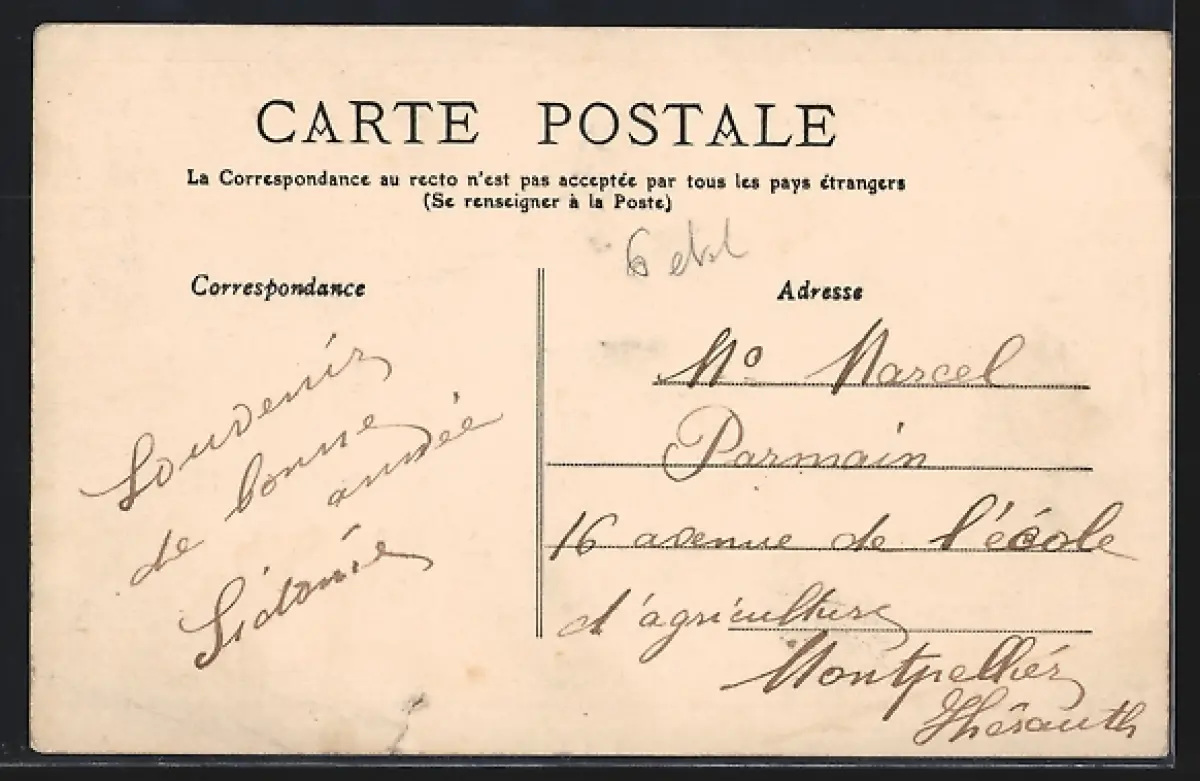 CARTE POSTALE
La Correspondance au recto n'est pas acceptée par tous les pays étrangers
(Se renseigner à la Poste)
Correspondance
Souvenir
de bonne
année
Sidonie
Adresse
Mr Marcel
Parmain
16 avenue de l'école
d'agriculture
Montpellier